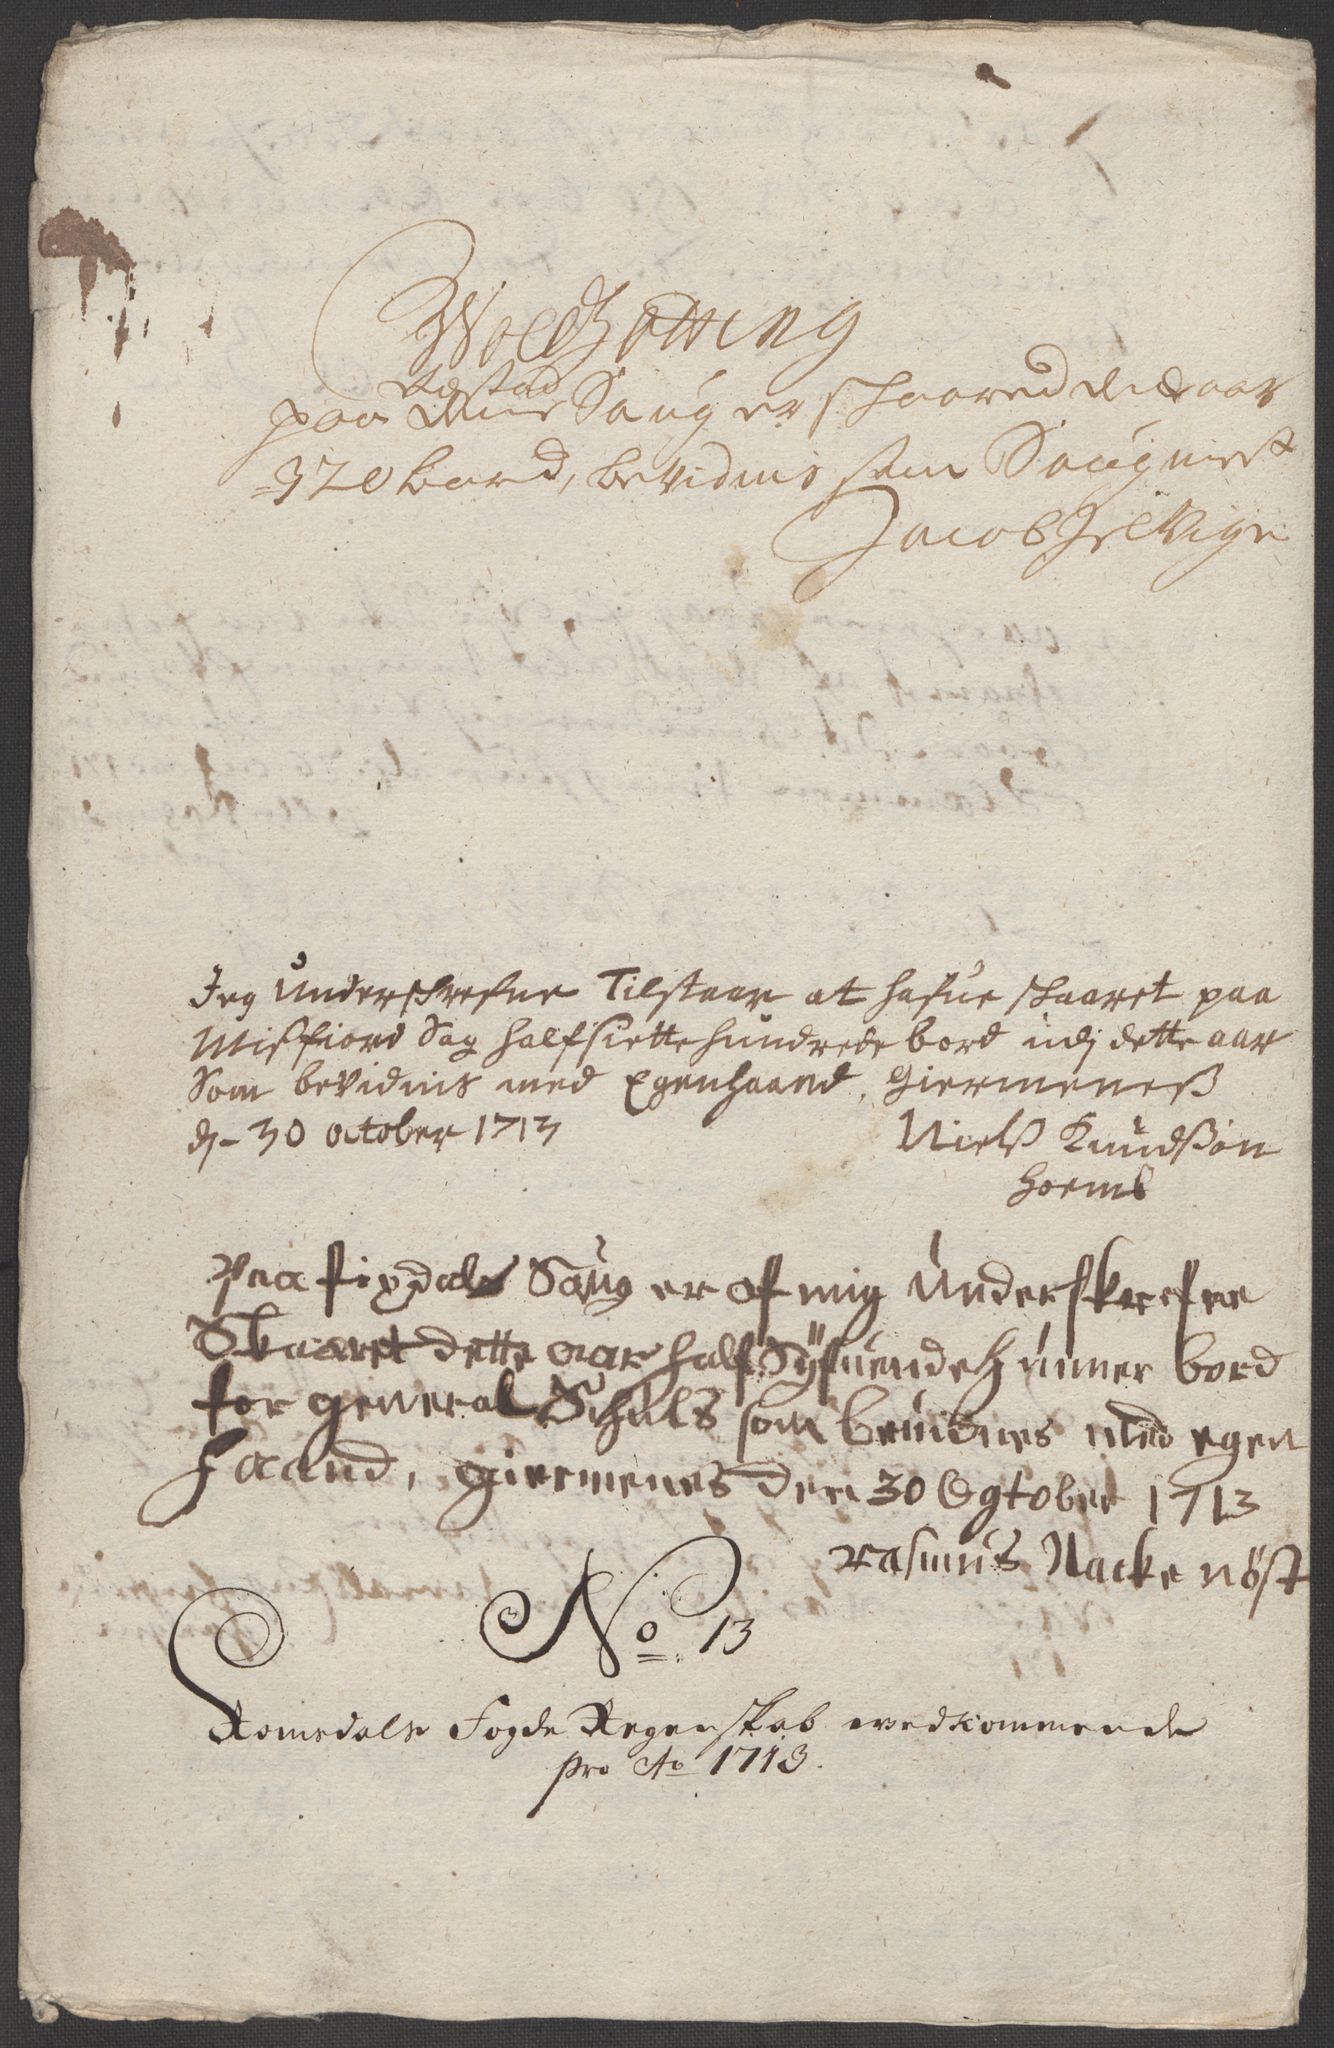 paa Saug er skaared dette aar
370 bord, bevidnis som Saugmest
Jacob
Jeg Underskrefne Tilstaar at hafue skaaret paa
Misfiord Sag halfsiette hundrede bord udj dette aar
Som bevidnis med Egenhaand, Giermeneß
dj- 30 october 1713
Nielß Knudßøn
hoem
Paa fixdals Saug er af mig Underskrefne
Skaaret dette aar half Syfuende Hunner bord
for general Schuls som beuidnes med egen
Haand, giermenes den 30 Ogtober 1713
rasmus Nackenøst
No. 13
Romsdals Fogde Regenskab wedkommende
pro Ao 1713.